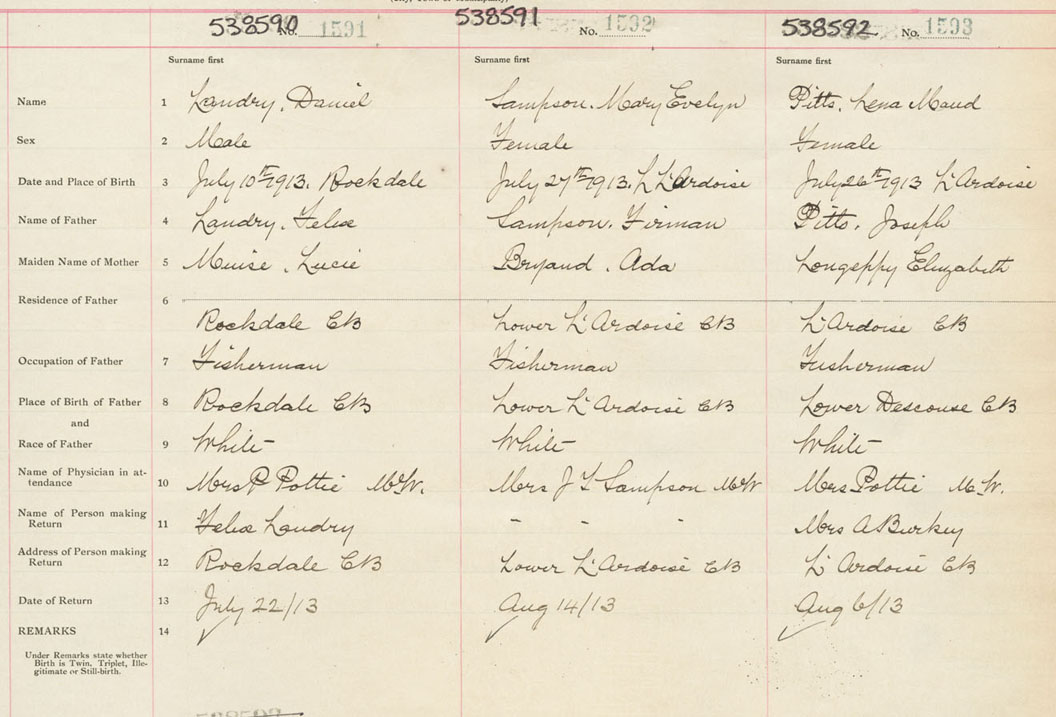 538590 No. 1591 538591 No. 1592 538592 No. 1593
Surname first Surname first Surname first
Name 1 Landry, Daniel Sampson. Mary Evelyn Pitts, Lena Maud
Sex 2 Male Female Female
Date and Place of Birth 3 July 10th 1913. Rockdale July 27th 1913. L L'Ardoise July 26th 1913 L'Ardoise
Name of Father 4 Landry, Felix Sampson. Firman Pitts, Joseph
Maiden Name of Mother 5 Muise, Lucie Bryand. Ada Longeppy Elizabeth
Residence of Father 6
Rockdale CB Lower L'Ardoise CB L'Ardoise CB
Occupation of Father 7 Fisherman Fisherman Fusherman
Place of Birth of Father 8 Rockdale CB Lower L'Ardoise CB Lower Descouse CB
and
Race of Father 9 White White White
Name of Physician in at-
tendance 10 Mrs P Pottie M.W. Mrs J T Sampson M.W Mrs Pottie M.W.
Name of Person making
Return 11 Felix Landry - - - Mrs A Burkey
Address of Person making
Return 12 Rockdale CB Lower L'Ardoise CB L'Ardoise CB
Date of Return 13 July 22/13 Aug 14/13 Aug 6/13
REMARKS 14
Under Remarks state whether
Birth is Twin, Triplet, Ille-
gitimate or Still-birth.